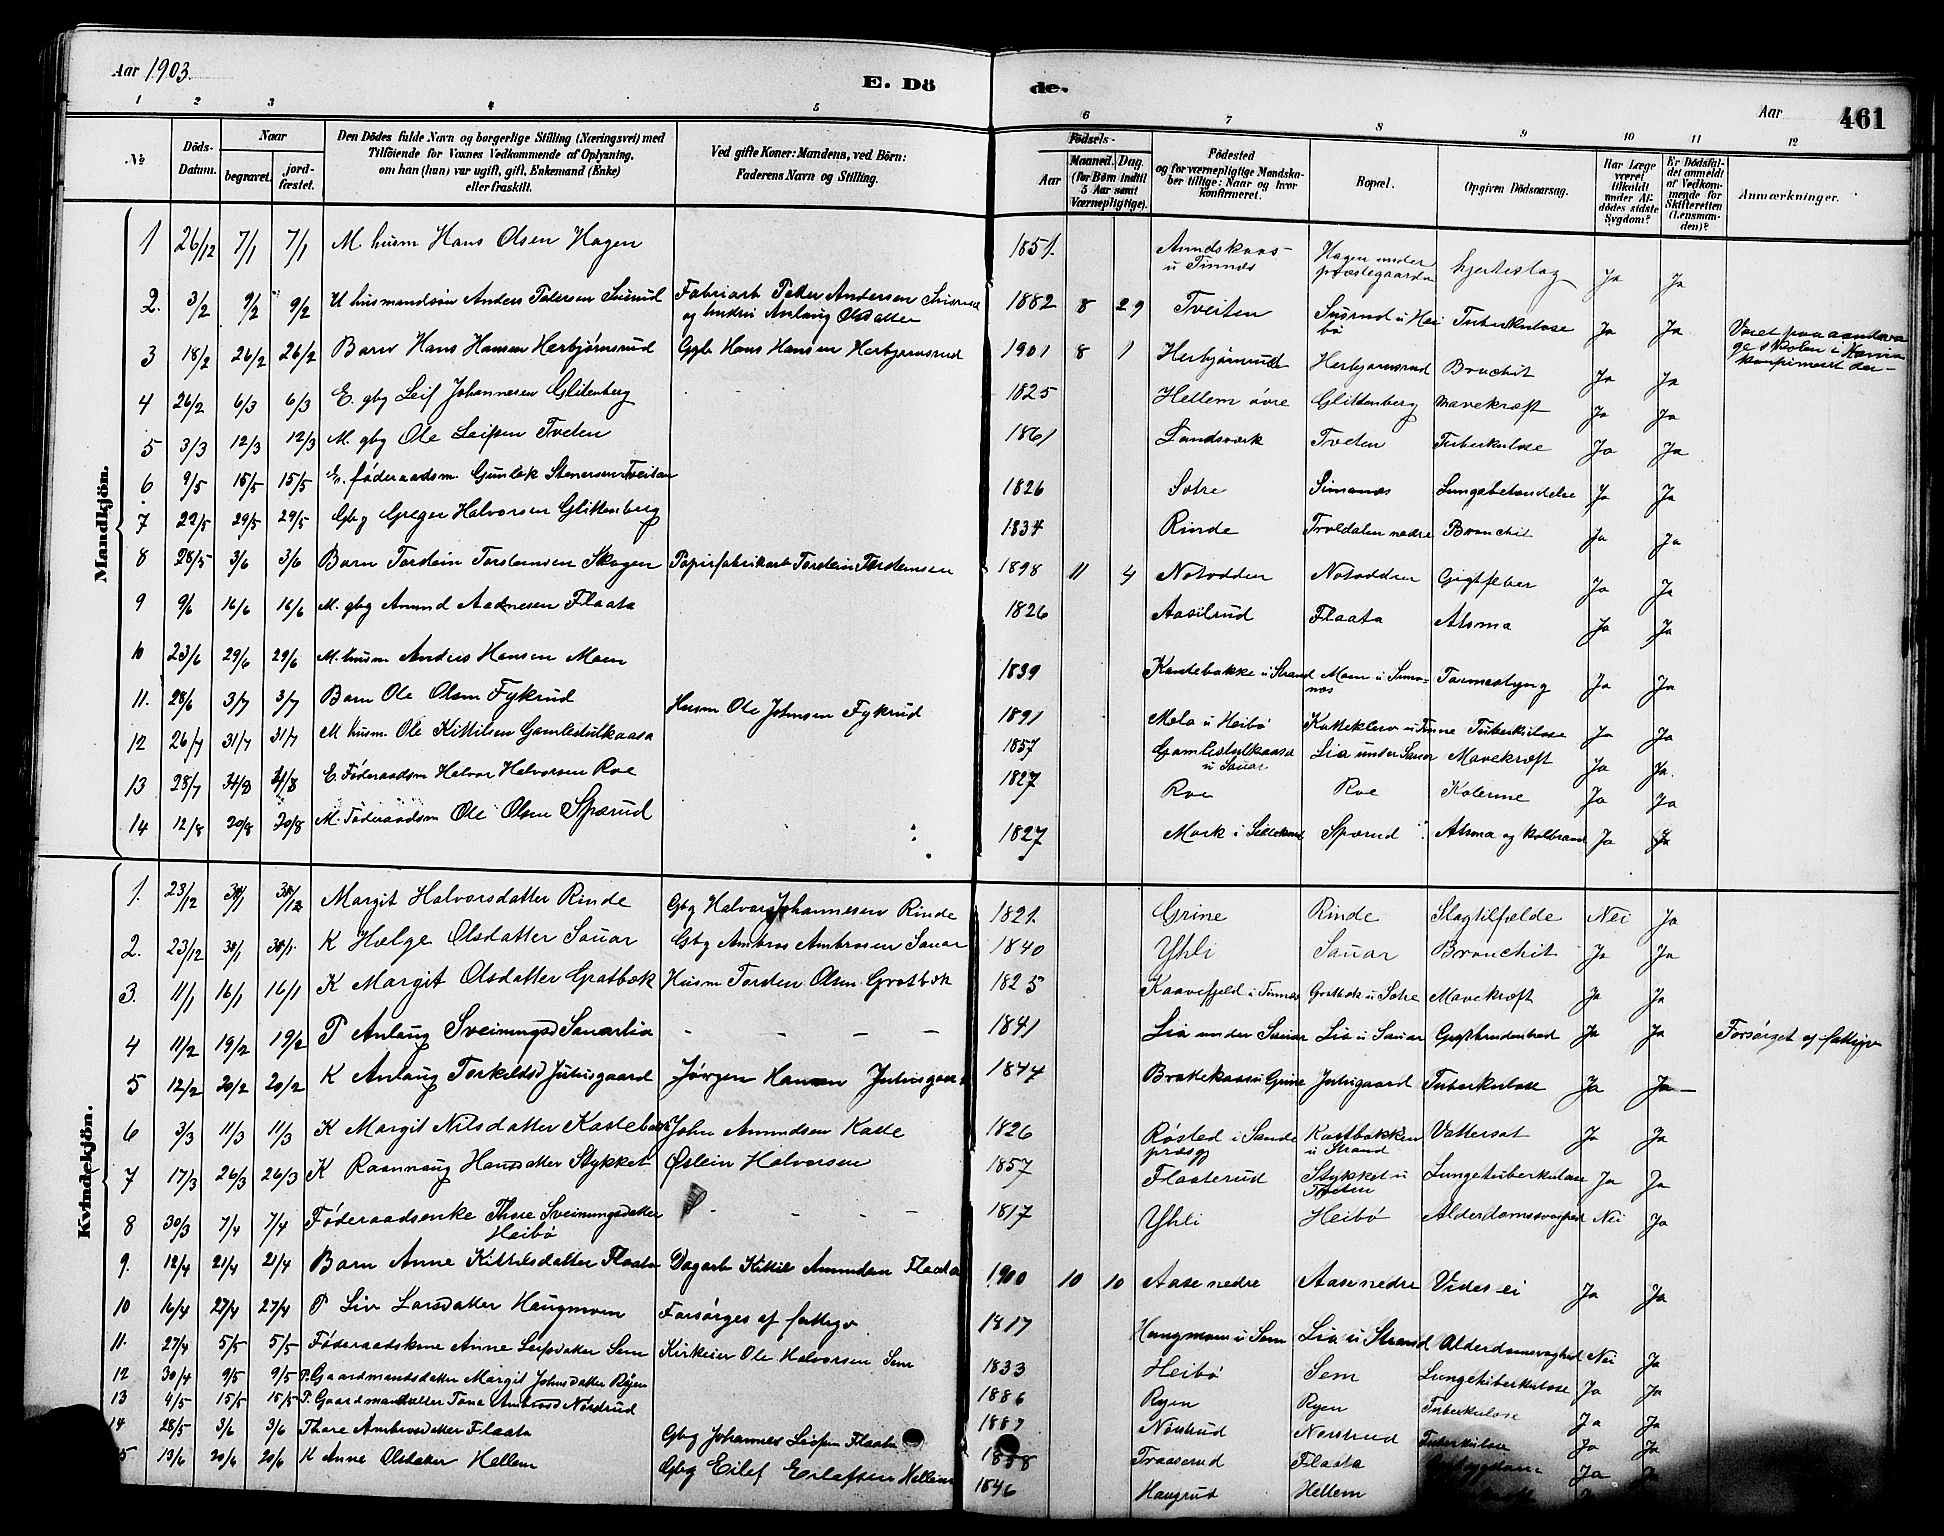 Aar 1903.
E. Dö
de.
Aar
461
1 2 3 4 5 6 7 8 9 10 11 12
No
Döds-Datum.
Naar
begravet.
jord-fæstet.
Den Dödes fulde Navn og borgerlige Stilling (Næringsvei) med
Tilföiende for Voxnes Vedkommende af Oplysning,
om han (hun) var ugift, gift, Enkemand (Enke)
eller fraskilt.
Ved gifte Koner: Mandens, ved Börn:
Faderens Navn og Stilling.
Födsels-
Aar
Maaned. Dag.
(for Börn indtil
5 Aar samt
Værnepligtige).
Födested
og for værnepligtige Mandska-
ber tillige: Naar og hvor
konfirmeret.
Bopæl.
Opgiven Dödsaarsag.
Har Læge
været
tilkaldt
under Af-
dödes sidste
Sygdom?
Er Dödsfal-
det anmeldt
af Vedkom-
mende for
Skifteretten
(Lensman-
den)?
Anmærkninger.
Mandkjön.
1 26/12 7/1 7/1 M. husm Hans Olsen Hagen 1851. Hagen under præstegaarden hjerteslag Ja Ja
2. 3/2 9/2 9/2 U husmandsön Anders Petersen Fabriarb Peder Andersen og hustru Anlaug Olsdatter 1882 8 29 Tveiten Tuberkulose Ja Ja
3 18/2 26/2 26/2 Barn Hans Hansen Herbjørnsrud Gbr Hans Hansen Herbjørnsrud 1901 8 1 Herbjørnsrud Herbjørnsrud Bronchit Ja Ja
4 26/2 6/3 6/3 E. gbg Leif Johannesen Glitenberg 1825 Hellem øvre Glittenberg mavekræft Ja Ja
5 3/3 12/3 12/3 M. gbg Ole Leifsen Tveten 1861 Landsværk Tveten Tuberkulose Ja Ja
6 9/5 15/5 15/5 E. føderaadsm. Gunlek Stenersen Tveitan 1826 Sotre Simones Lungebetændelse Ja Ja
7 22/5 29/5 29/5 Gbg Greger Halvorsen Glittenberg 1834 Rinde Troldalen nedre Bronchit Ja Ja
8 28/5 3/6 3/6 Barn Tordein Torsteinsen Skogen Papirfabrikarb Torstein Torsteinsen 1898 11 4 Notodden Notodden Gigtfeber Ja Ja
9 9/6 16/6 16/6 M. gbg Amund Aadnesen Flaata 1826 Aaslirud Flaata Atsma Ja Ja
10 23/6 29/6 29/6 M. husm Anders Hansen Moen 1839 Kastebakke i Strand Moen Tarmeslyng Ja Ja
11. 28/6 3/7 3/7 Barn Ole Olsen Fykerud Husm Ole Johnsen Fykrud 1891 Melo u Heibø Tuberkulose Ja Ja
12 26/7 31/7 31/7 M husm. Ole Kittilsen Gamlestulkaasa 1857 Gamlestulkaasa u Sauar Lia under Sauar Mavekræft Ja Ja.
13 28/7 E Føderaadsm Halvor Halvorsen Roe 1827 Roe Roe Kolerine Ja Ja
14 12/8 20/8 20/8 M. Føderaadsm Ole Olsen Sparud 1827 Mork i Sparud Atsma og kolbrand Ja Ja
Kvindekjön.
1. 23/12 Margit Halvorsdatter Rinde Gbg Halvor Johannesen Rinde 1821. Grine Rinde Slagtilfælde Nei Ja
2. 23/12 K Hælge Olsdatter Sauar Gbg Ambros Ambrosen Sauar 1840 Yhli Sauar Bronchit Ja Ja
3. 11/1 16/1 16/1 K Margit Olsdatter Grotbæk Husm Torden Olsen Grotbæk 1825 Kaavefjeld i Tinnes Grotbæk u Sotre Mavekræft Ja Ja
4 11/2 19/2 19/2 P Anlaug Sveinungsd Sauarlia - - - - 1841 Lia under Sauar Lia u Sauar Ja Ja Forsørget af fattigv
5 12/2 20/2 20/2 K Anlaug Torkildsd Juliusgaard Jørgen Hansen Juliusgaard 1844 Juliusgaard Tuberkulose Ja Ja
6 3/3 11/3 11/3 K Margit Nilsdatter Kastebak John Amundsen Kaste 1826 Røsted i Sande præsgj Kastbakken u Strand Vattersot Ja Ja
7 17/3 26/3 26/3 K Raannaug Hansdatter Stykket Østein Halvorsen 1857 Flaaterud Stykket u Tveten Lungetuberkulose Ja Ja
8 30/3 7/4 7/4 Føderaadsenke Thore Sveinungsdatter Heibø - - - - 1817 Yhli Heibø Nei Ja
9. 12/4 21/4 21/4 Barn Anne Kittilsdatter Flaata Dagarb Kittil Amundsen Flaata 1900 10 10 Aase nedre Aase nedre Vides ei Ja Ja
10 16/4 27/4 27/4 P Liv Larsdatter Haugmoen Forsørges af fattigv. 1817 Haugmoen u Sem Lia u Strand Alderdomssvaghed Nei Ja
11. 27/4 5/5 5/5 Føderaadskone Anne Leifsdatter Sem Kirkeier Ole Halvorsen Sem 1833 Heibø Sem Lungetuberkulose Ja Ja
12 30/4 9/5 9/5 P. Gaardmandsdatter Margit Johnsdatter Ryen 1886 Ryen Ryen Tuberkulose Ja Ja
13 4/5 15/5 15/5 P. Gaardmandsdatter Tone Ambrosd Nordrud 1887 Nordrud Nordrud Tuberkulose Ja Ja
14 28/5 3/6 3/6 Thore Ambrosdatter Flaata Gbg Johannes Leifsen Flaata 1838 Traaserud Flaata Ja Ja
5 13/6 20/6 20/6 K Anne Olsdatter Hellem Gbg Eilef Eilefsen Hellem 1846 Haugrud Hellem